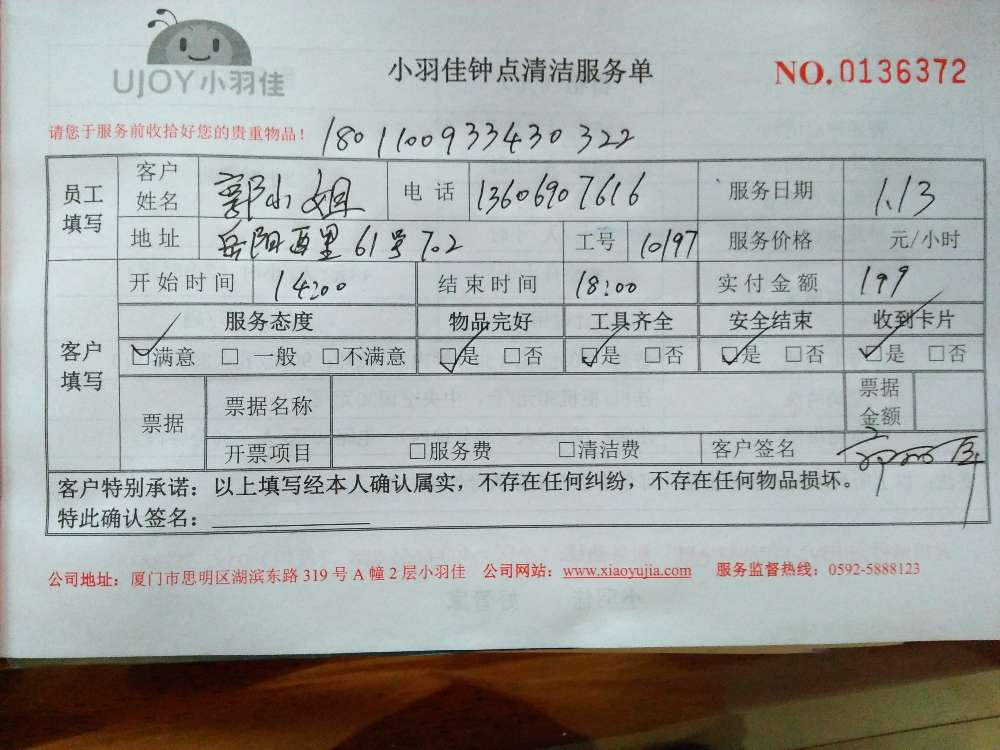 UJOY小羽佳
小羽佳钟点清洁服务单
NO.0136372
请您于服务前收拾好您的贵重物品！ 1801100933430322
员工填写 客户姓名 郭小姐 电话 13606907616 服务日期 1.13
地址 岳阳西里61号702 工号 10197 服务价格 元/小时
客户填写 开始时间 14:00 结束时间 18:00 实付金额 199
服务态度 物品完好 工具齐全 安全结束 收到卡片
☑满意 □一般 □不满意 ☑是 □否 ☑是 □否 ☑是 □否 ☑是 □否
票据 票据名称 票据金额
开票项目 □服务费 □清洁费 客户签名
客户特别承诺：以上填写经本人确认属实，不存在任何纠纷，不存在任何物品损坏。
特此确认签名：
公司地址：厦门市思明区湖滨东路 319 号 A 幢 2 层小羽佳 公司网站：www.xiaoyujia.com 服务监督热线：0592-5888123